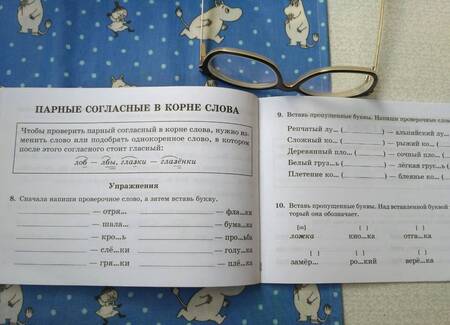 ПАРНЫЕ СОГЛАСНЫЕ В КОРНЕ СЛОВА
Чтобы проверить парный согласный в корне слова, нужно из-
менить слово или подобрать однокоренное слово, в котором
после этого согласного стоит гласный:
лоб — лбы, глазки — глазёнки
Упражнения
8. Сначала напиши проверочное слово, а затем вставь букву.
— отря... — фла...ки
— шала... — бума...ка
— кро...ь — про...ьба
— слё...ки — голу...ка
— гря...ки — плё...ка
9. Вставь пропущенные буквы. Напиши проверочные
Репчатый лу... ( ) — альпийский лу...
Сложный ко... ( ) — рыжий ко... (
Деревянный пло... ( ) — сочный пло...
Белый гру...ь ( ) — лёгкая гру...ь
Плетение ко... ( ) — ко... (
10. Вставь пропущенные буквы. Над вставленной буквой
торый она обозначает.
[ш] [ ] [ ]
ложка кно...ка отга...ка
[ ] [ ] [ ]
замёр... ро...кий верё...ка